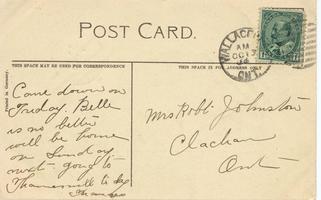 POST CARD.
THIS SPACE MAY BE USED FOR CORRESPONDENCE
THIS SPACE IS FOR ADDRESS ONLY
Printed in Germany.
WALLACEBURG
AM
OC 13
ONT.
Come down on
Friday. Belle
is no better
will be home
on Sunday
next going to
Thamesville to day
Mrs Robt Johnston
Clachan
Ont